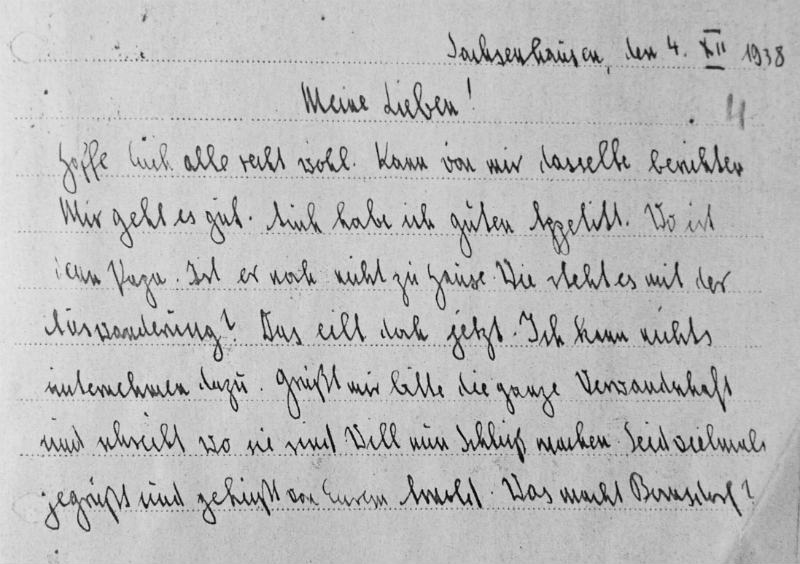 Sachsenhausen, den 4. XII 1938
4
Meine Lieben!
Hoffe Euch alle recht wohl. Kann von mir dasselbe berichten
Mir geht es gut. Auch habe ich guten Appetitt. Wo ist
denn Papa. Ist er noch nicht zu Hause. Wie steht es mit der
Auswanderung? Das eilt doch jetzt. Ich kann nichts
unternehmen dazu. Grüßt mir bitte die ganze Verwandschaft
und schreibt wo sie sind Will nun Schluß machen. Seid vielmals
gegrüßt und geküßt von Eurem Arnold. Was macht Bernsdorf?